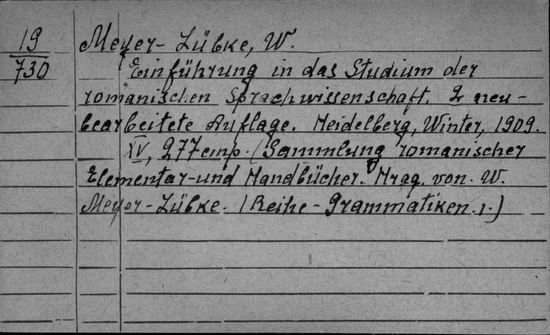 19
730
Meyer-Lübke, W.
Einführung in das Studium der
romanischen Sprachwissenschaft. 2 neu-
bearbeitete Auflage. Heidelberg, Winter, 1909.
XV, 277 стр. (Sammlung romanischer
Elementar-und Handbücher. Hrag. von. W.
Meyer-Lübke. (Reihe-Grammatiken. 1.)